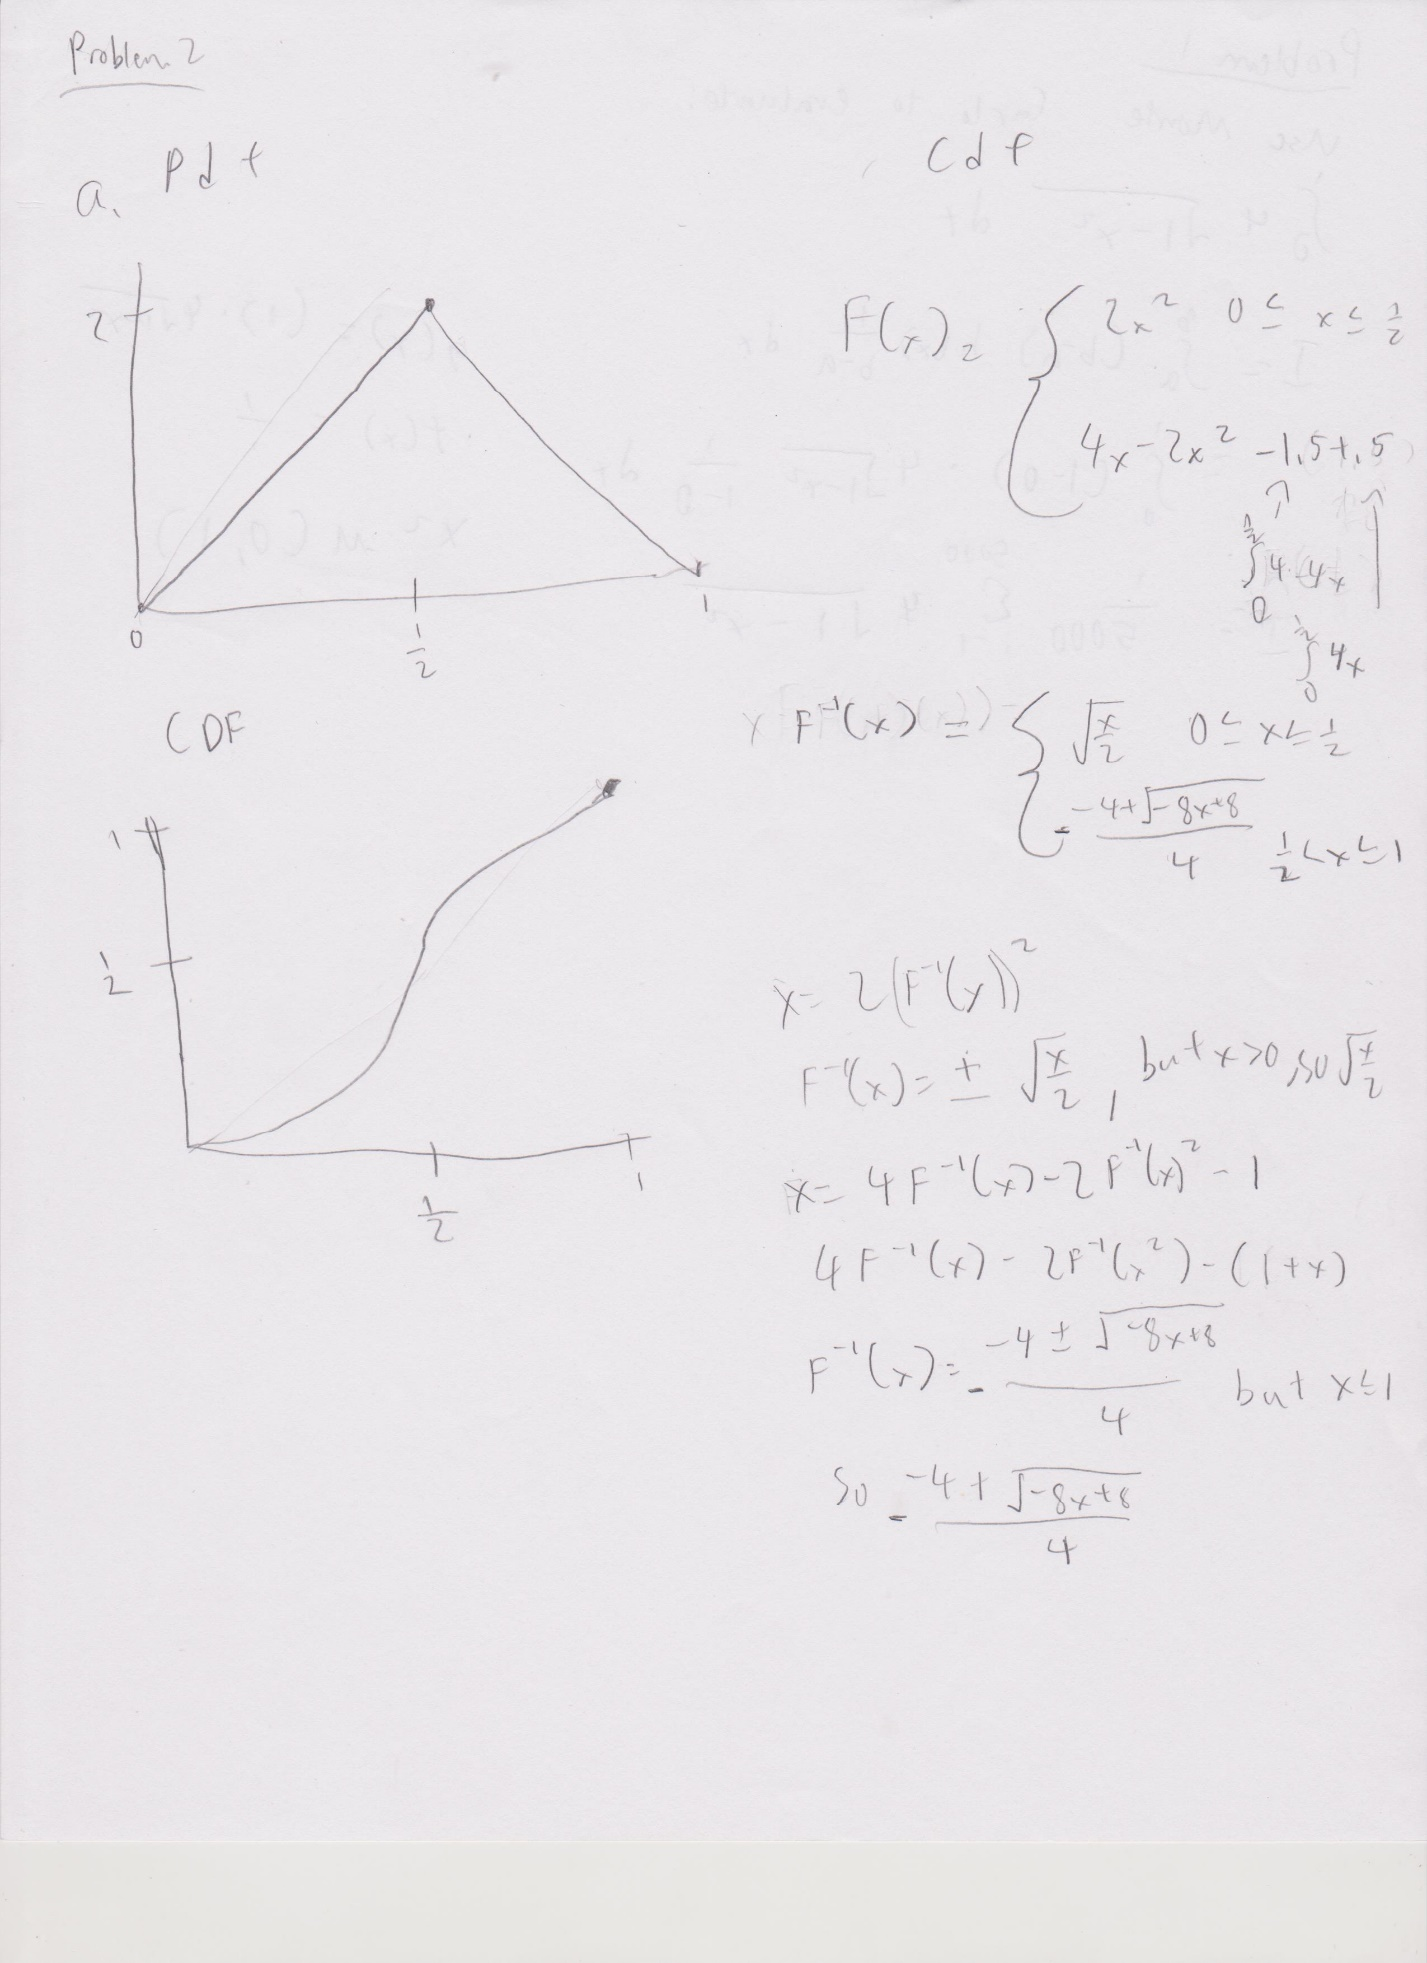 Problem 2
a. Pdf
2
0
1/2
1
CDF
1
1/2
1/2
1
Cdf
F(x) = { 2x² 0 ≤ x ≤ 1/2
4x - 2x² - 1.5 + .5
∫₀^½ 4-4x
∫₀^½ 4x
F⁻¹(x) = { √(x/2) 0 ≤ x ≤ 1/2
- (-4+√(-8x+8))/4 1/2 < x ≤ 1
x = 2(F⁻¹(x))²
F⁻¹(x) = ± √(x/2), but x>0, so √(x/2)
x = 4F⁻¹(x) - 2F⁻¹(x)² - 1
4F⁻¹(x) - 2F⁻¹(x²) - (1+x)
F⁻¹(x) = - (-4 ± √(-8x+8))/4 but x ≤ 1
So - (-4 + √(-8x+8))/4